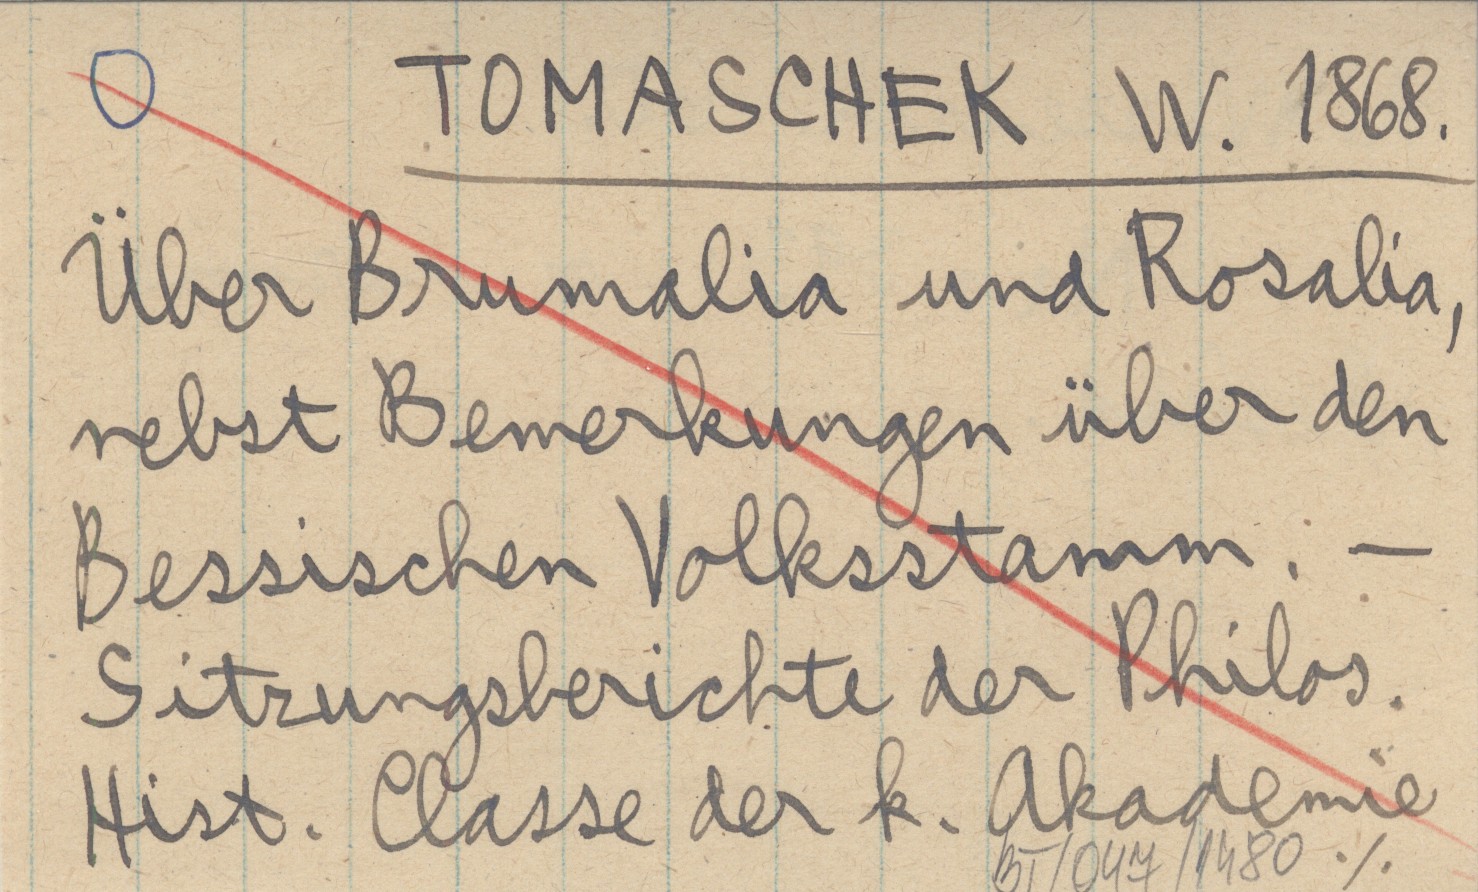 TOMASCHEK W. 1868.
Über Brumalia und Rosalia,
nebst Bemerkungen über den
Bessischen Volksstamm. —
Sitzungsberichte der Philos.
Hist. Classe der k. Akademie
BI/047/1480 ./.